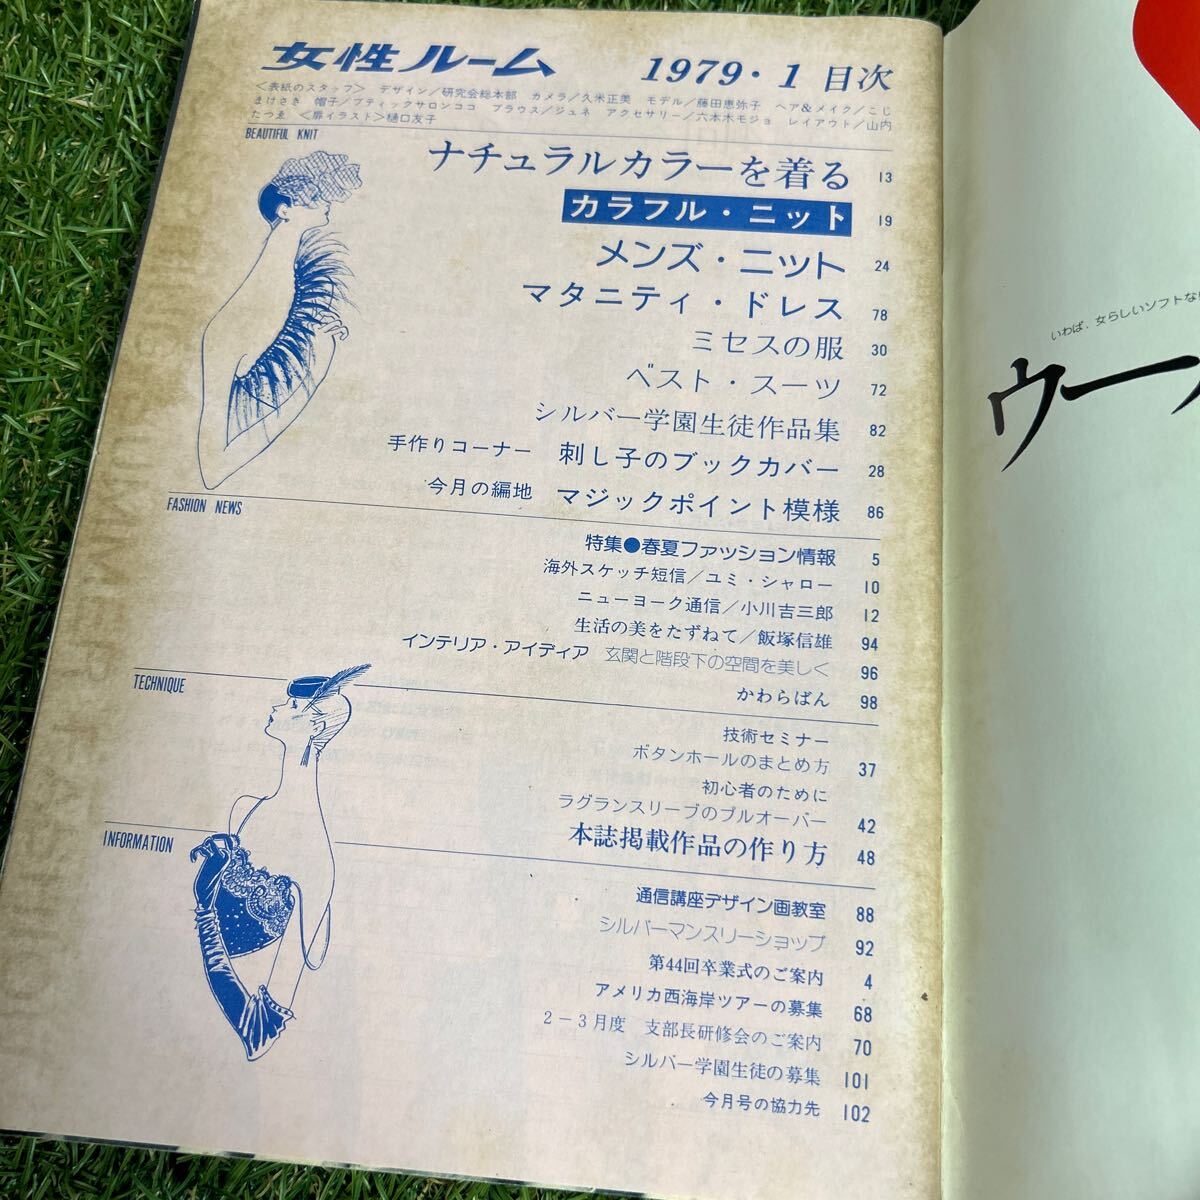 女性ルーム 1979・1 目次
＜表紙のスタッフ＞ デザイン／研究会総本部 カメラ／久米正美 モデル／藤田恵弥子 ヘア＆メイク／こじ
まけさき 帽子／ブティックサロンココ ブラウス／ジュネ アクセサリー／六本木モジョ レイアウト／山内
たつゑ ＜扉イラスト＞樋口友子
BEAUTIFUL KNIT
ナチュラルカラーを着る 13
カラフル・ニット 19
メンズ・ニット 24
マタニティ・ドレス 78
ミセスの服 30
ベスト・スーツ 72
シルバー学園生徒作品集 82
手作りコーナー 刺し子のブックカバー 28
今月の編地 マジックポイント模様 86
FASHION NEWS
特集●春夏ファッション情報 5
海外スケッチ短信／ユミ・シャロー 10
ニューヨーク通信／小川吉三郎 12
生活の美をたずねて／飯塚信雄 94
インテリア・アイディア 玄関と階段下の空間を美しく 96
かわらばん 98
TECHNIQUE
技術セミナー
ボタンホールのまとめ方 37
初心者のために
ラグランスリーブのプルオーバー 42
本誌掲載作品の作り方 48
INFORMATION
通信講座デザイン画教室 88
シルバーマンスリーショップ 92
第44回卒業式のご案内 4
アメリカ西海岸ツアーの募集 68
2－3月度 支部長研修会のご案内 70
シルバー学園生徒の募集 101
今月号の協力先 102
いわば、女らしいソフトな
ウー